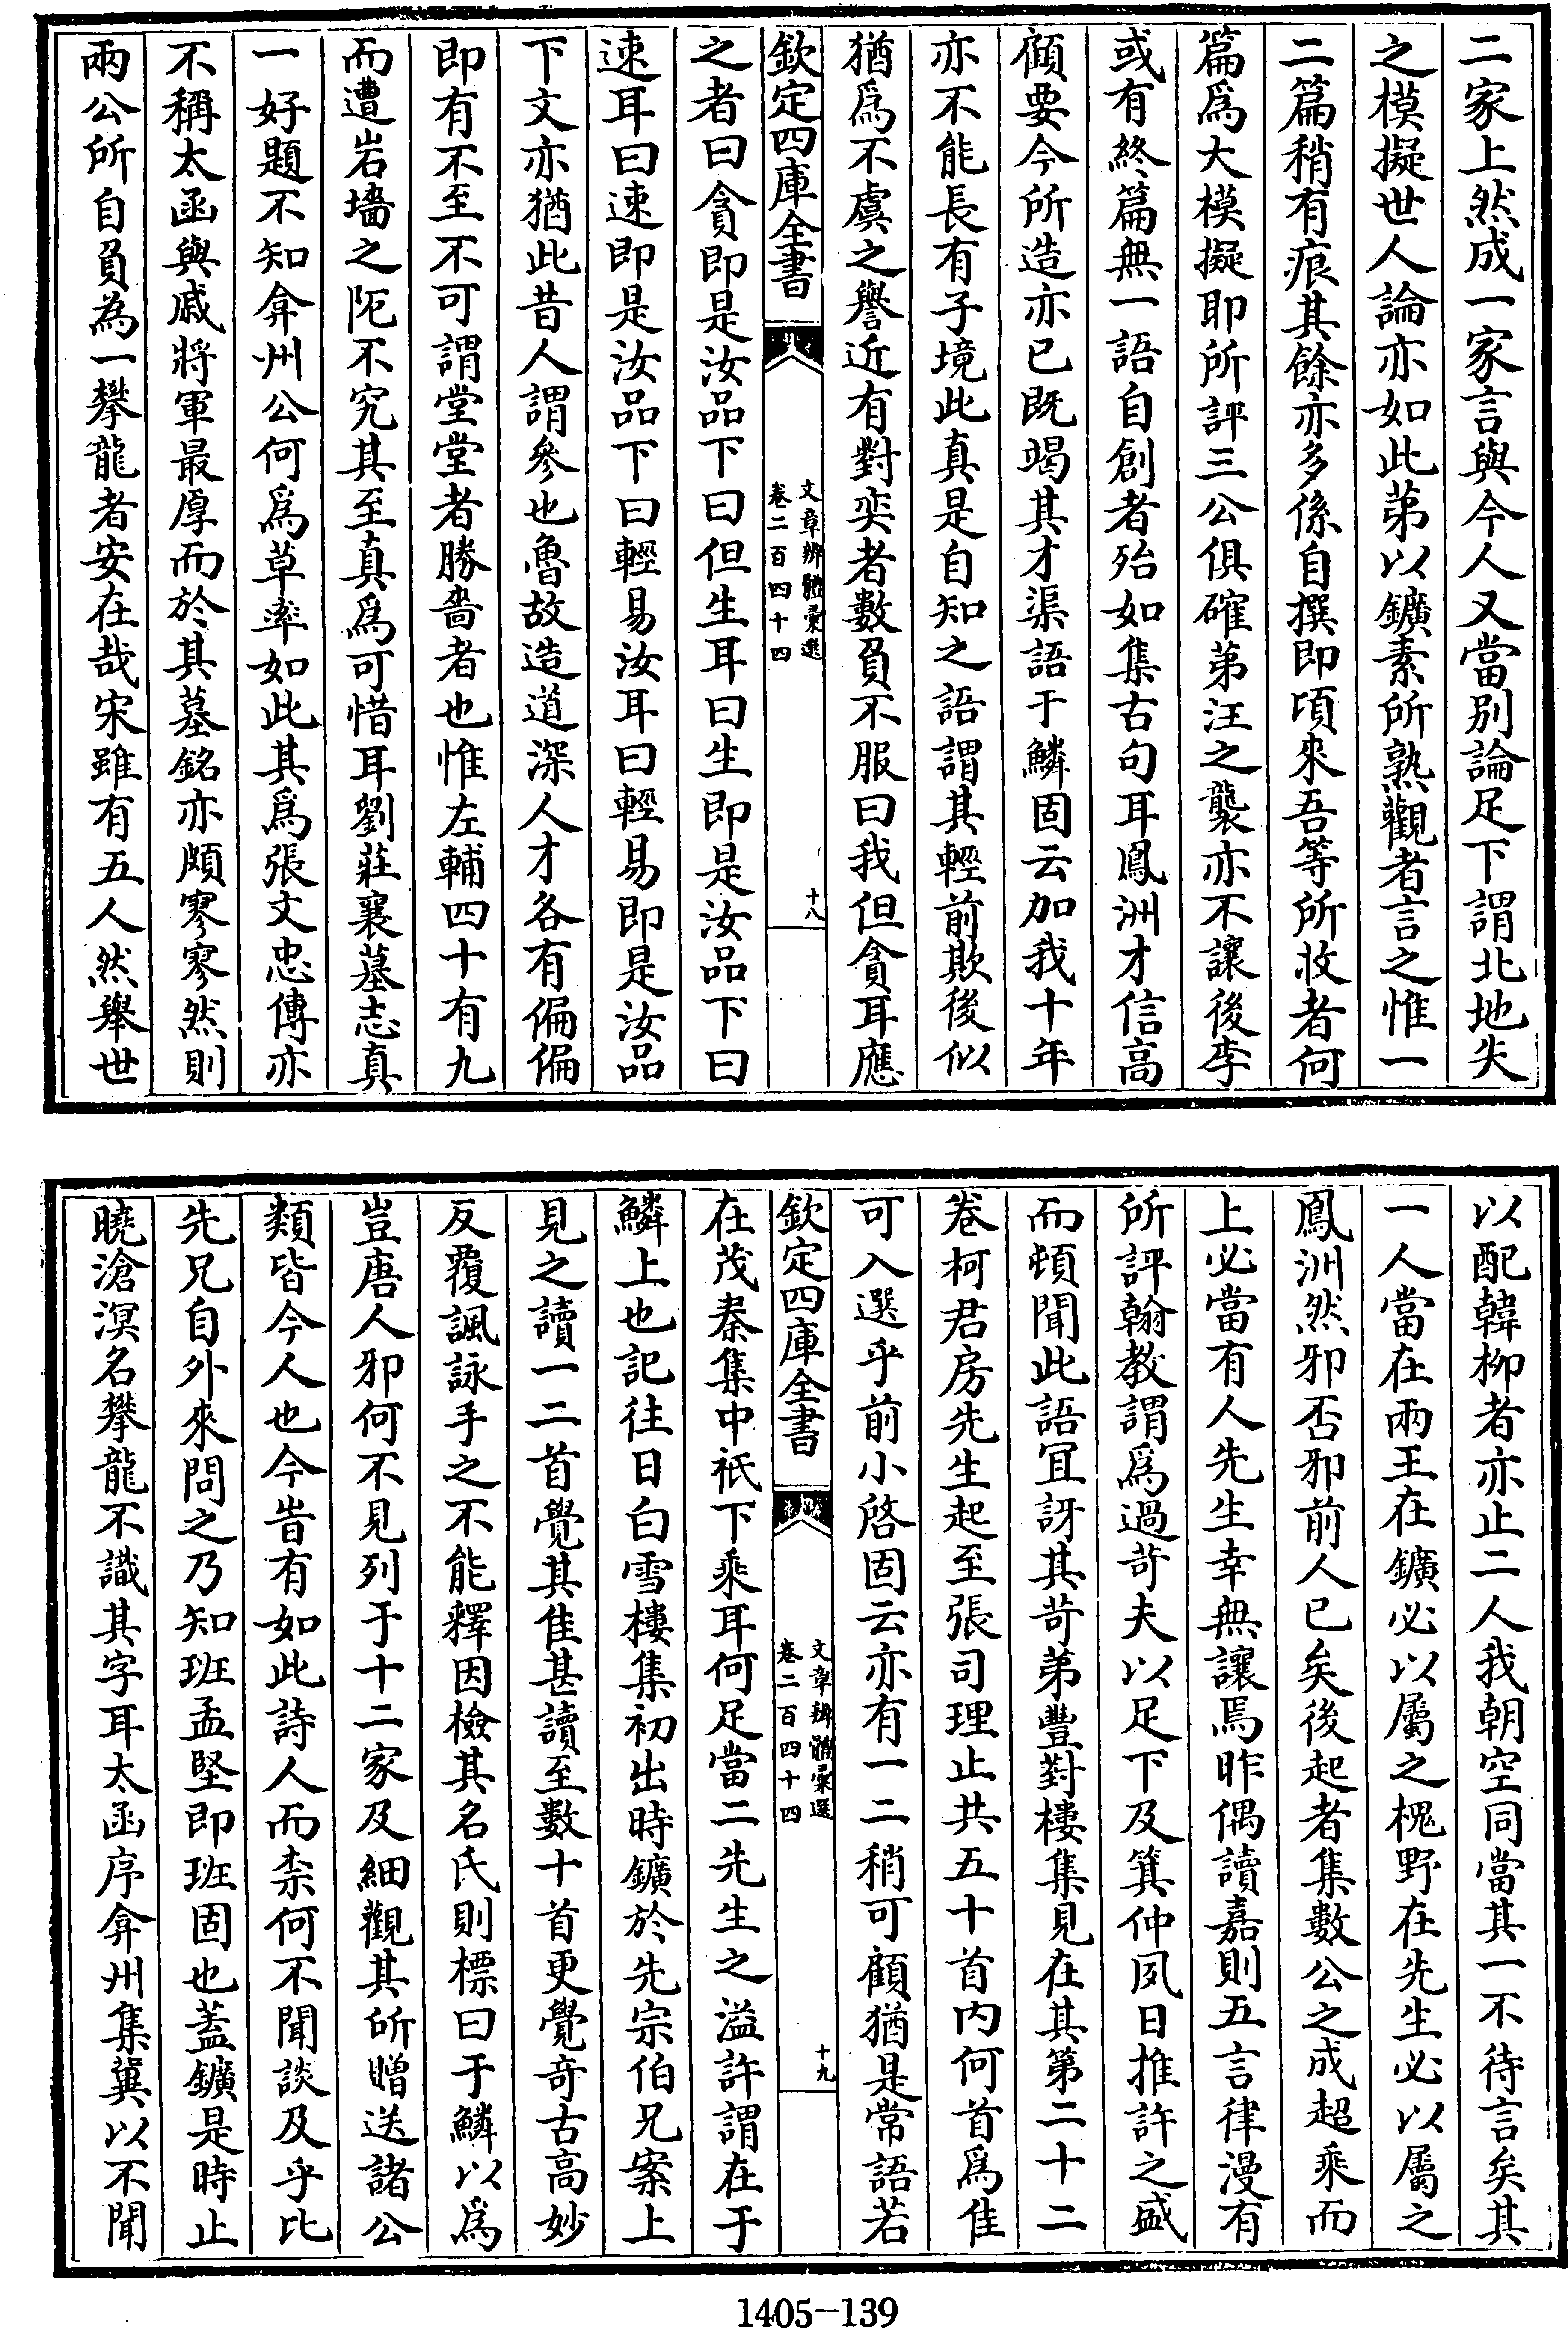 二家上然成一家言與今人又當别論足下謂北地失
之模擬世人論亦如此弟以鑛素所熟觀者言之惟一
二篇稍有痕其餘亦多係自撰即頃來吾等所收者何
篇爲大模擬耶所評三公俱確第汪之襲亦不讓後李
或有終篇無一語自創者殆如集古句耳鳳洲才信高
顧要今所造亦已既竭其才渠語于鱗固云加我十年
亦不能長有子境此真是自知之語謂其輕前欺後似
猶爲不虞之譽近有對奕者數負不服曰我但貪耳應
欽定四庫全書
文章辨體彙選
卷二百四十四
十八
之者曰貪即是汝品下曰但生耳曰生即是汝品下曰
速耳曰速即是汝品下曰輕易汝耳曰輕易即是汝品
下文亦猶此昔人謂參也魯故造道深人才各有偏偏
即有不至不可謂堂堂者勝嗇者也惟左輔四十有九
而遭岩墻之阨不究其至真爲可惜耳劉莊襄墓志真
一好題不知弇州公何爲草率如此其爲張文忠傳亦
不稱太函與戚將軍最厚而於其墓銘亦頗寥寥然則
兩公所自負為一攀龍者安在哉宋雖有五人然舉世
以配韓柳者亦止二人我朝空同當其一不待言矣其
一人當在兩王在鑛必以屬之槐野在先生必以屬之
鳳洲然邪否邪前人已矣後起者集數公之成超乘而
上必當有人先生幸無讓焉昨偶讀嘉則五言律漫有
所評翰教謂爲過苛夫以足下及箕仲夙日推許之盛
而頓聞此語宜訝其苛弟豐對樓集見在其第二十二
卷柯君房先生起至張司理止共五十首内何首爲佳
可入選乎前小啓固云亦有一二稍可顧猶是常語若
欽定四庫全書
文章辨體彙選
卷二百四十四
十九
在茂秦集中祇下乘耳何足當二先生之溢許謂在于
鱗上也記往日白雪樓集初出時鑛於先宗伯兄案上
見之讀一二首覺其佳甚讀至數十首更覺奇古高妙
反覆諷詠手之不能釋因檢其名氏則標曰于鱗以爲
豈唐人邪何不見列于十二家及細觀其所贈送諸公
類皆今人也今旹有如此詩人而柰何不聞談及乎比
先兄自外來問之乃知班孟堅即班固也蓋鑛是時止
曉滄溟名攀龍不識其字耳太函序弇州集冀以不聞
1405-139